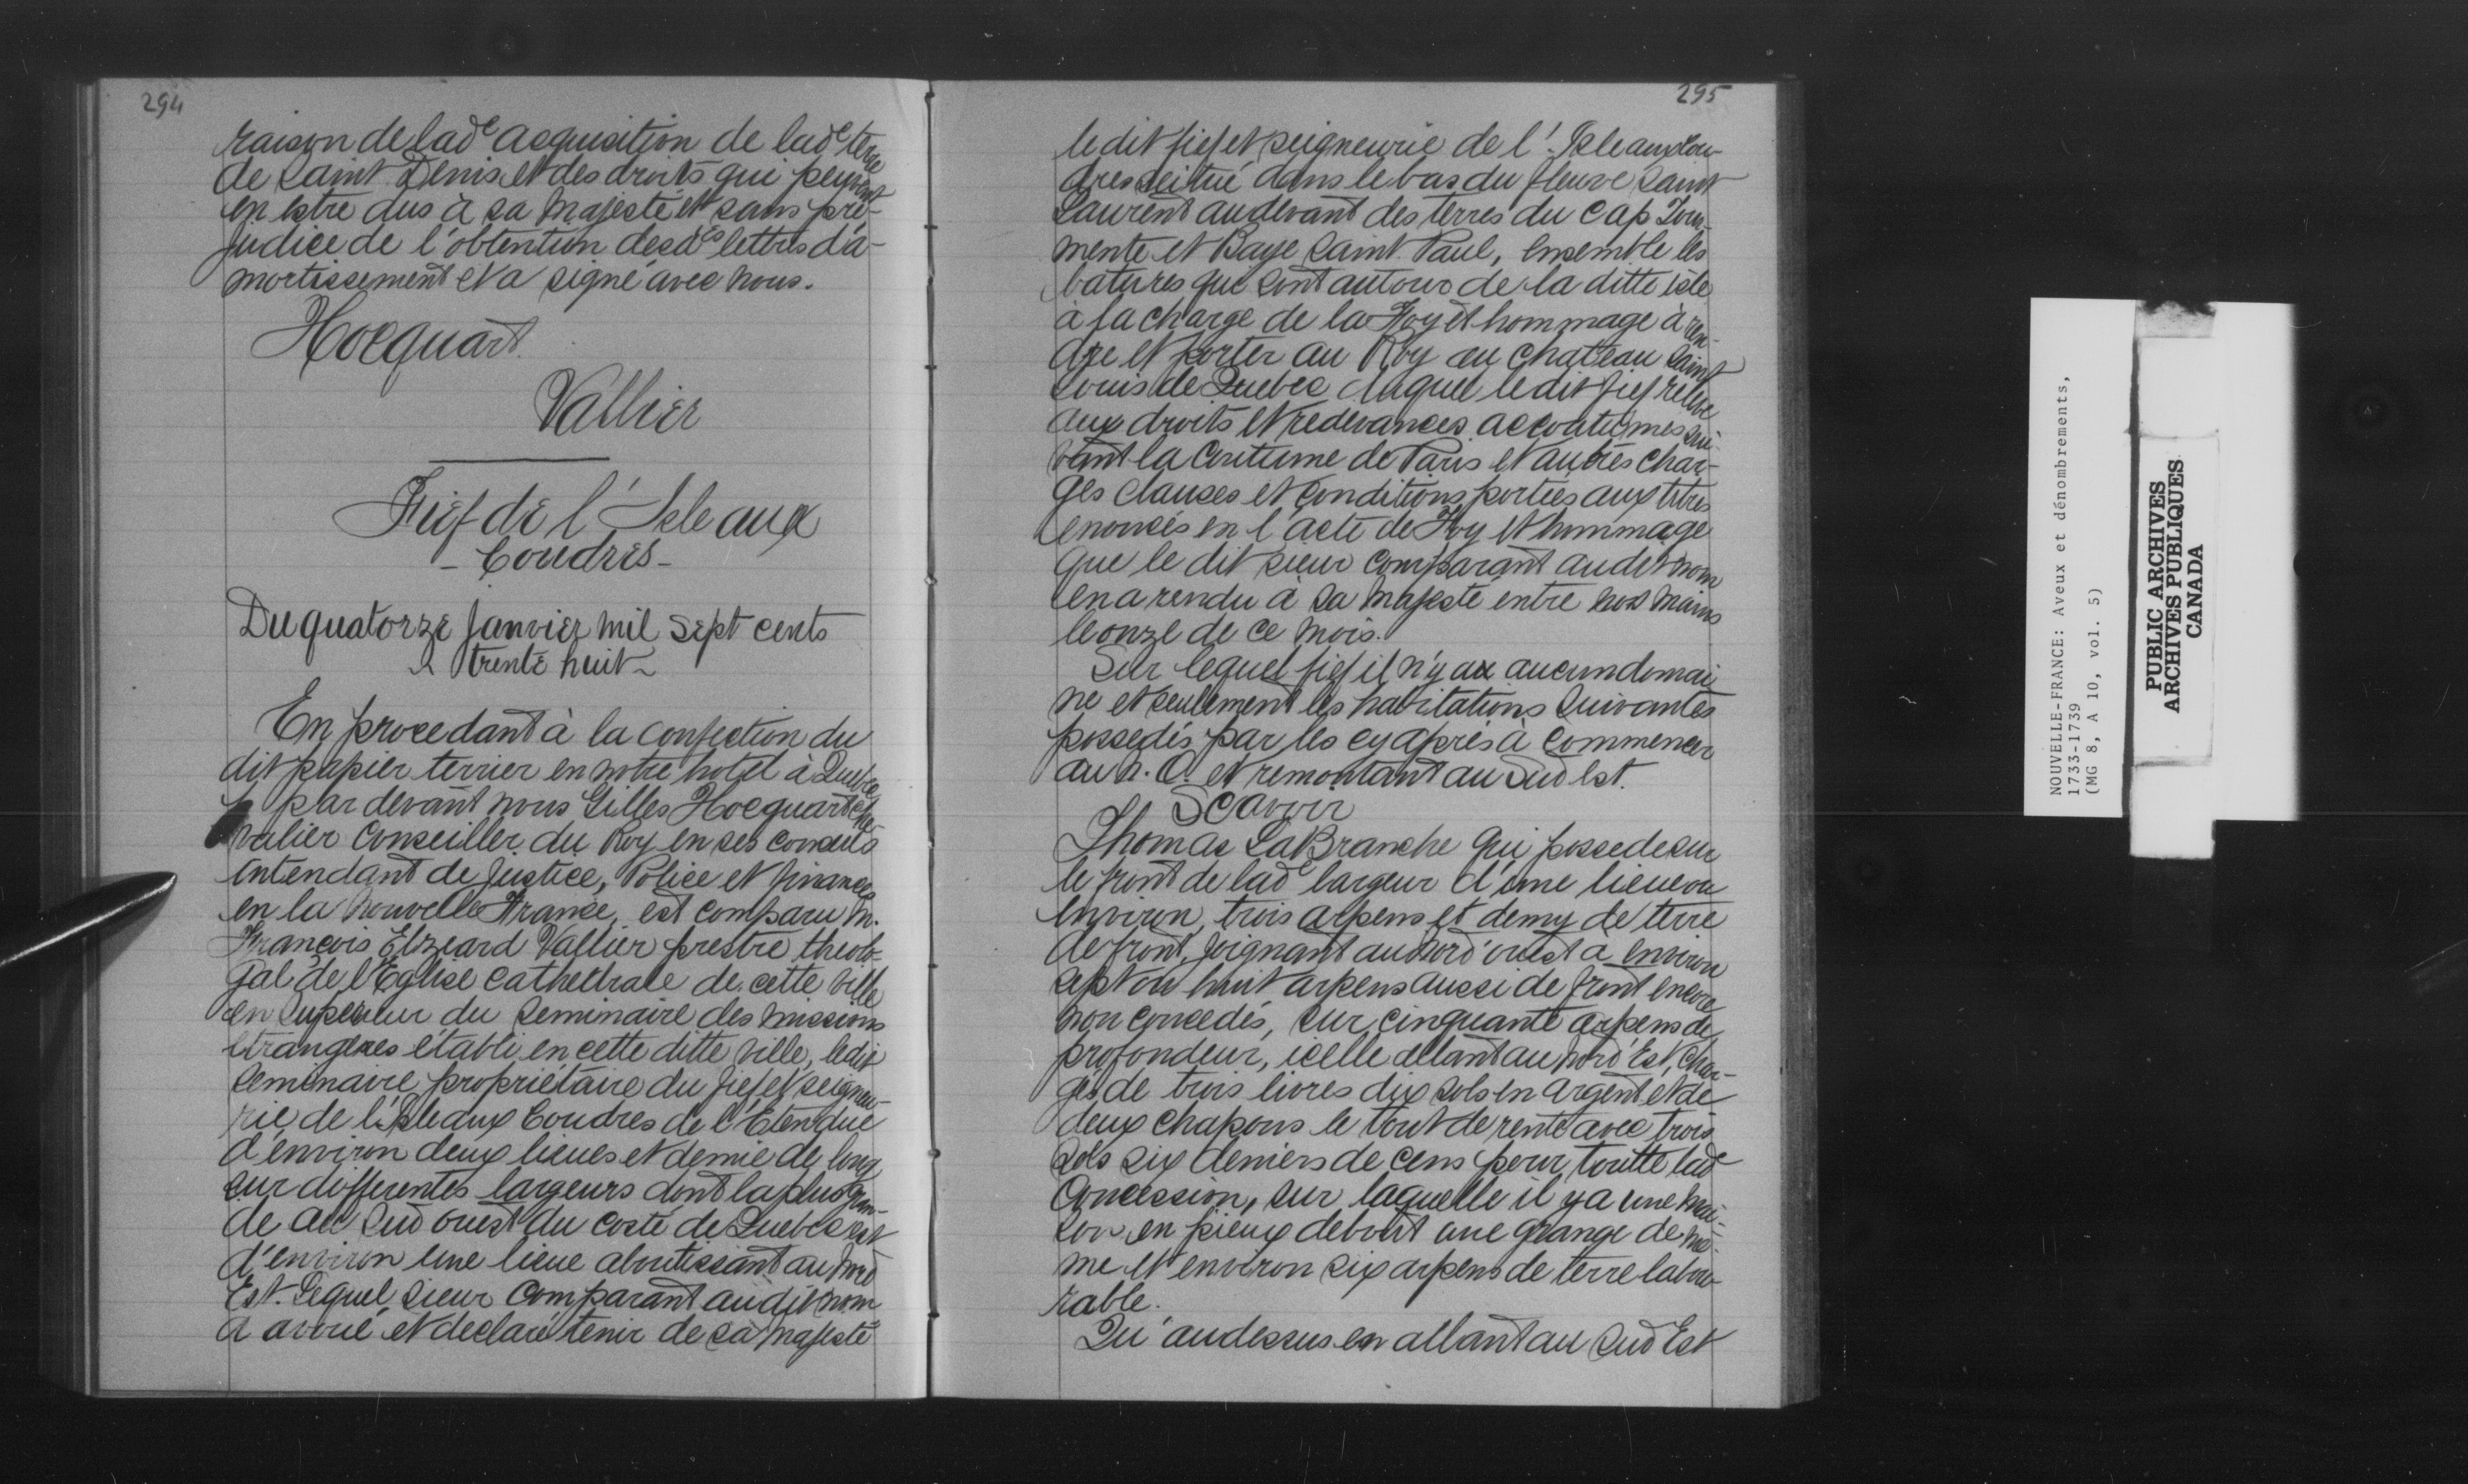 294
raison de lad^e acquisition de lad^e terre
de Saint Denis et des droits qui peuvent
en estre dus à sa Majesté et sans pré-
judice de l'obtention desd^es lettres d'a-
mortissement et a signé avec nous.
Hocquart
Vallier
Fief de l'Isle aux
- Coudres -
Du quatorze Janvier mil sept cents
trente huit
En procedant à la confection du
dit papier terrier en notre hotel à Quebec
par devant nous Gilles Hocquart che-
valier Conseiller du Roy en ses conseils
intendant de Justice, Police et finances
en la nouvelle France, est comparu M.
François Elzeard Vallier prestre theolo-
gal de l'Eglise Cathedrale de cette ville
en Superieur du Seminaire des missions
etrangeres établi en cette ditte ville, ledit
Seminaire propriétaire du fief et seigneu-
rie de l'Isle aux Coudres de l'Etendue
d'environ deux lieues et demie de long
sur differentes largeurs dont la plus gran-
de au Sud ouest du costé de Quebec est
d'environ une lieue aboutissant au Nord
Est. Lequel Sieur Comparant audit nom
a avoué et declaré tenir de sa Majesté
295
le dit fief et seigneurie de l'Isle aux Cou-
dres scitué dans le bas du fleuve Saint
Laurent au devant des terres du Cap Tour-
mente et Baye Saint Paul, ensemble les
batures qui sont autour de la ditte isle
à la charge de la Foy et hommage à ren-
dre et porter au Roy au chateau Saint
Louis de Quebec duquel le dit fief releve
aux droits et redevances accoutumes sui-
vant la Coutume de Paris et autres char-
ges clauses et conditions portées aux titres
enoncés en l'acte de Foy et hommage
que le dit sieur comparant audit nom
en a rendu à Sa Majesté entre nos mains
le onze de ce mois.
Sur lequel fief il n'y a aucun domai
ne et seulement les habitations suivantes
possedés par les cy après à commencer
au n. O. et remontant au Sud Est.
Scavoir
Thomas LaBranche qui possede sur
le front de lad^e largeur d'une lieue ou
environ, trois arpens et demy de terre
de front, joignant au nord'ouest a environ
sept ou huit arpens aussi de front encore
non concedés, sur cinquante arpens de
profondeur, icelle allant au Nord'Est, char-
gés de trois livres dix sols en argent et de
deux chapons le tout de rente avec trois
sols six deniers de cens pour toutte lad^e
Concession, sur laquelle il y a une mai-
son en pieux debout une grange de mê-
me et environ six arpens de terre labou
rable.
Qu'au dessus en allant au Sud Est
NOUVELLE-FRANCE: Aveux et dénombrements,
1733-1739
(MG 8, A 10, vol. 5)
PUBLIC ARCHIVES
ARCHIVES PUBLIQUES
CANADA